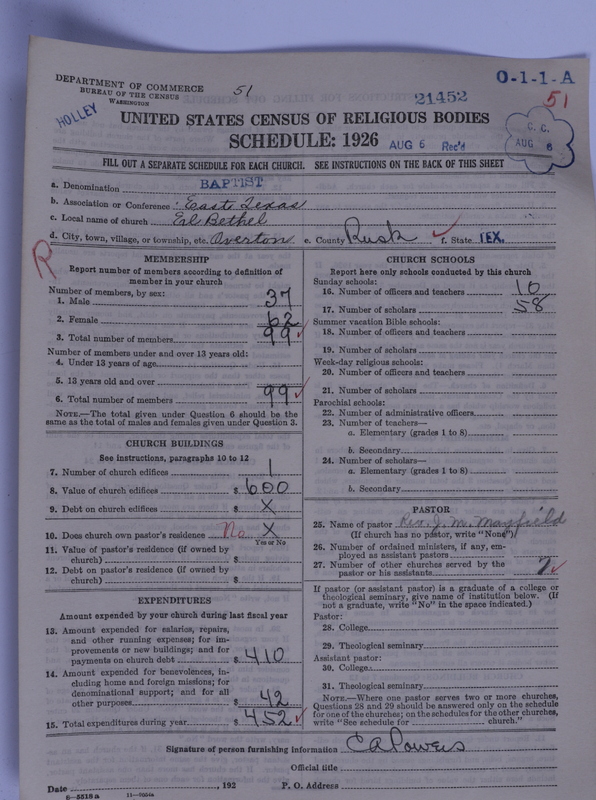 DEPARTMENT OF COMMERCE
BUREAU OF THE CENSUS
WASHINGTON
51
21452
O-1-1-A
51
HOLLEY
UNITED STATES CENSUS OF RELIGIOUS BODIES
SCHEDULE: 1926
AUG 6 Rec'd
C. C.
AUG 6
FILL OUT A SEPARATE SCHEDULE FOR EACH CHURCH. SEE INSTRUCTIONS ON THE BACK OF THIS SHEET
a. Denomination BAPTIST
b. Association or Conference East Texas
c. Local name of church Eal Bethel
d. City, town, village, or township, etc. Overton e. County Rusk f. State TEX.
R
MEMBERSHIP
Report number of members according to definition of
member in your church
Number of members, by sex:
1. Male 37
2. Female 62
3. Total number of members 99
Number of members under and over 13 years old:
4. Under 13 years of age
5. 13 years old and over
6. Total number of members 99
NOTE.—The total given under Question 6 should be the
same as the total of males and females given under Question 3.
CHURCH BUILDINGS
See instructions, paragraphs 10 to 12
7. Number of church edifices 1
8. Value of church edifices $ 600
9. Debt on church edifices $ X
10. Does church own pastor's residence No X
Yes or No
11. Value of pastor's residence (if owned by
church) $
12. Debt on pastor's residence (if owned by
church) $
EXPENDITURES
Amount expended by your church during last fiscal year
13. Amount expended for salaries, repairs,
and other running expenses; for im-
provements or new buildings; and for
payments on church debt $ 410
14. Amount expended for benevolences, in-
cluding home and foreign missions; for
denominational support; and for all
other purposes $ 42
15. Total expenditures during year $ 452
CHURCH SCHOOLS
Report here only schools conducted by this church
Sunday schools:
16. Number of officers and teachers 10
17. Number of scholars 58
Summer vacation Bible schools:
18. Number of officers and teachers
19. Number of scholars
Week-day religious schools:
20. Number of officers and teachers
21. Number of scholars
Parochial schools:
22. Number of administrative officers
23. Number of teachers—
a. Elementary (grades 1 to 8)
b. Secondary
24. Number of scholars—
a. Elementary (grades 1 to 8)
b. Secondary
PASTOR
25. Name of pastor Rev. J. M. Mayfield
(If church has no pastor, write "None")
26. Number of ordained ministers, if any, em-
ployed as assistant pastors
27. Number of other churches served by the
pastor or his assistants 7
If pastor (or assistant pastor) is a graduate of a college or
theological seminary, give name of institution below. (If
not a graduate, write "No" in the space indicated.)
Pastor:
28. College
29. Theological seminary
Assistant pastor:
30. College
31. Theological seminary
NOTE.—Where one pastor serves two or more churches,
Questions 28 and 29 should be answered only on the schedule
for one of the churches; on the schedules for the other churches,
write "See schedule for church."
Signature of person furnishing information C A Powers
Official title
Date , 192 P. O. Address
11—7004a